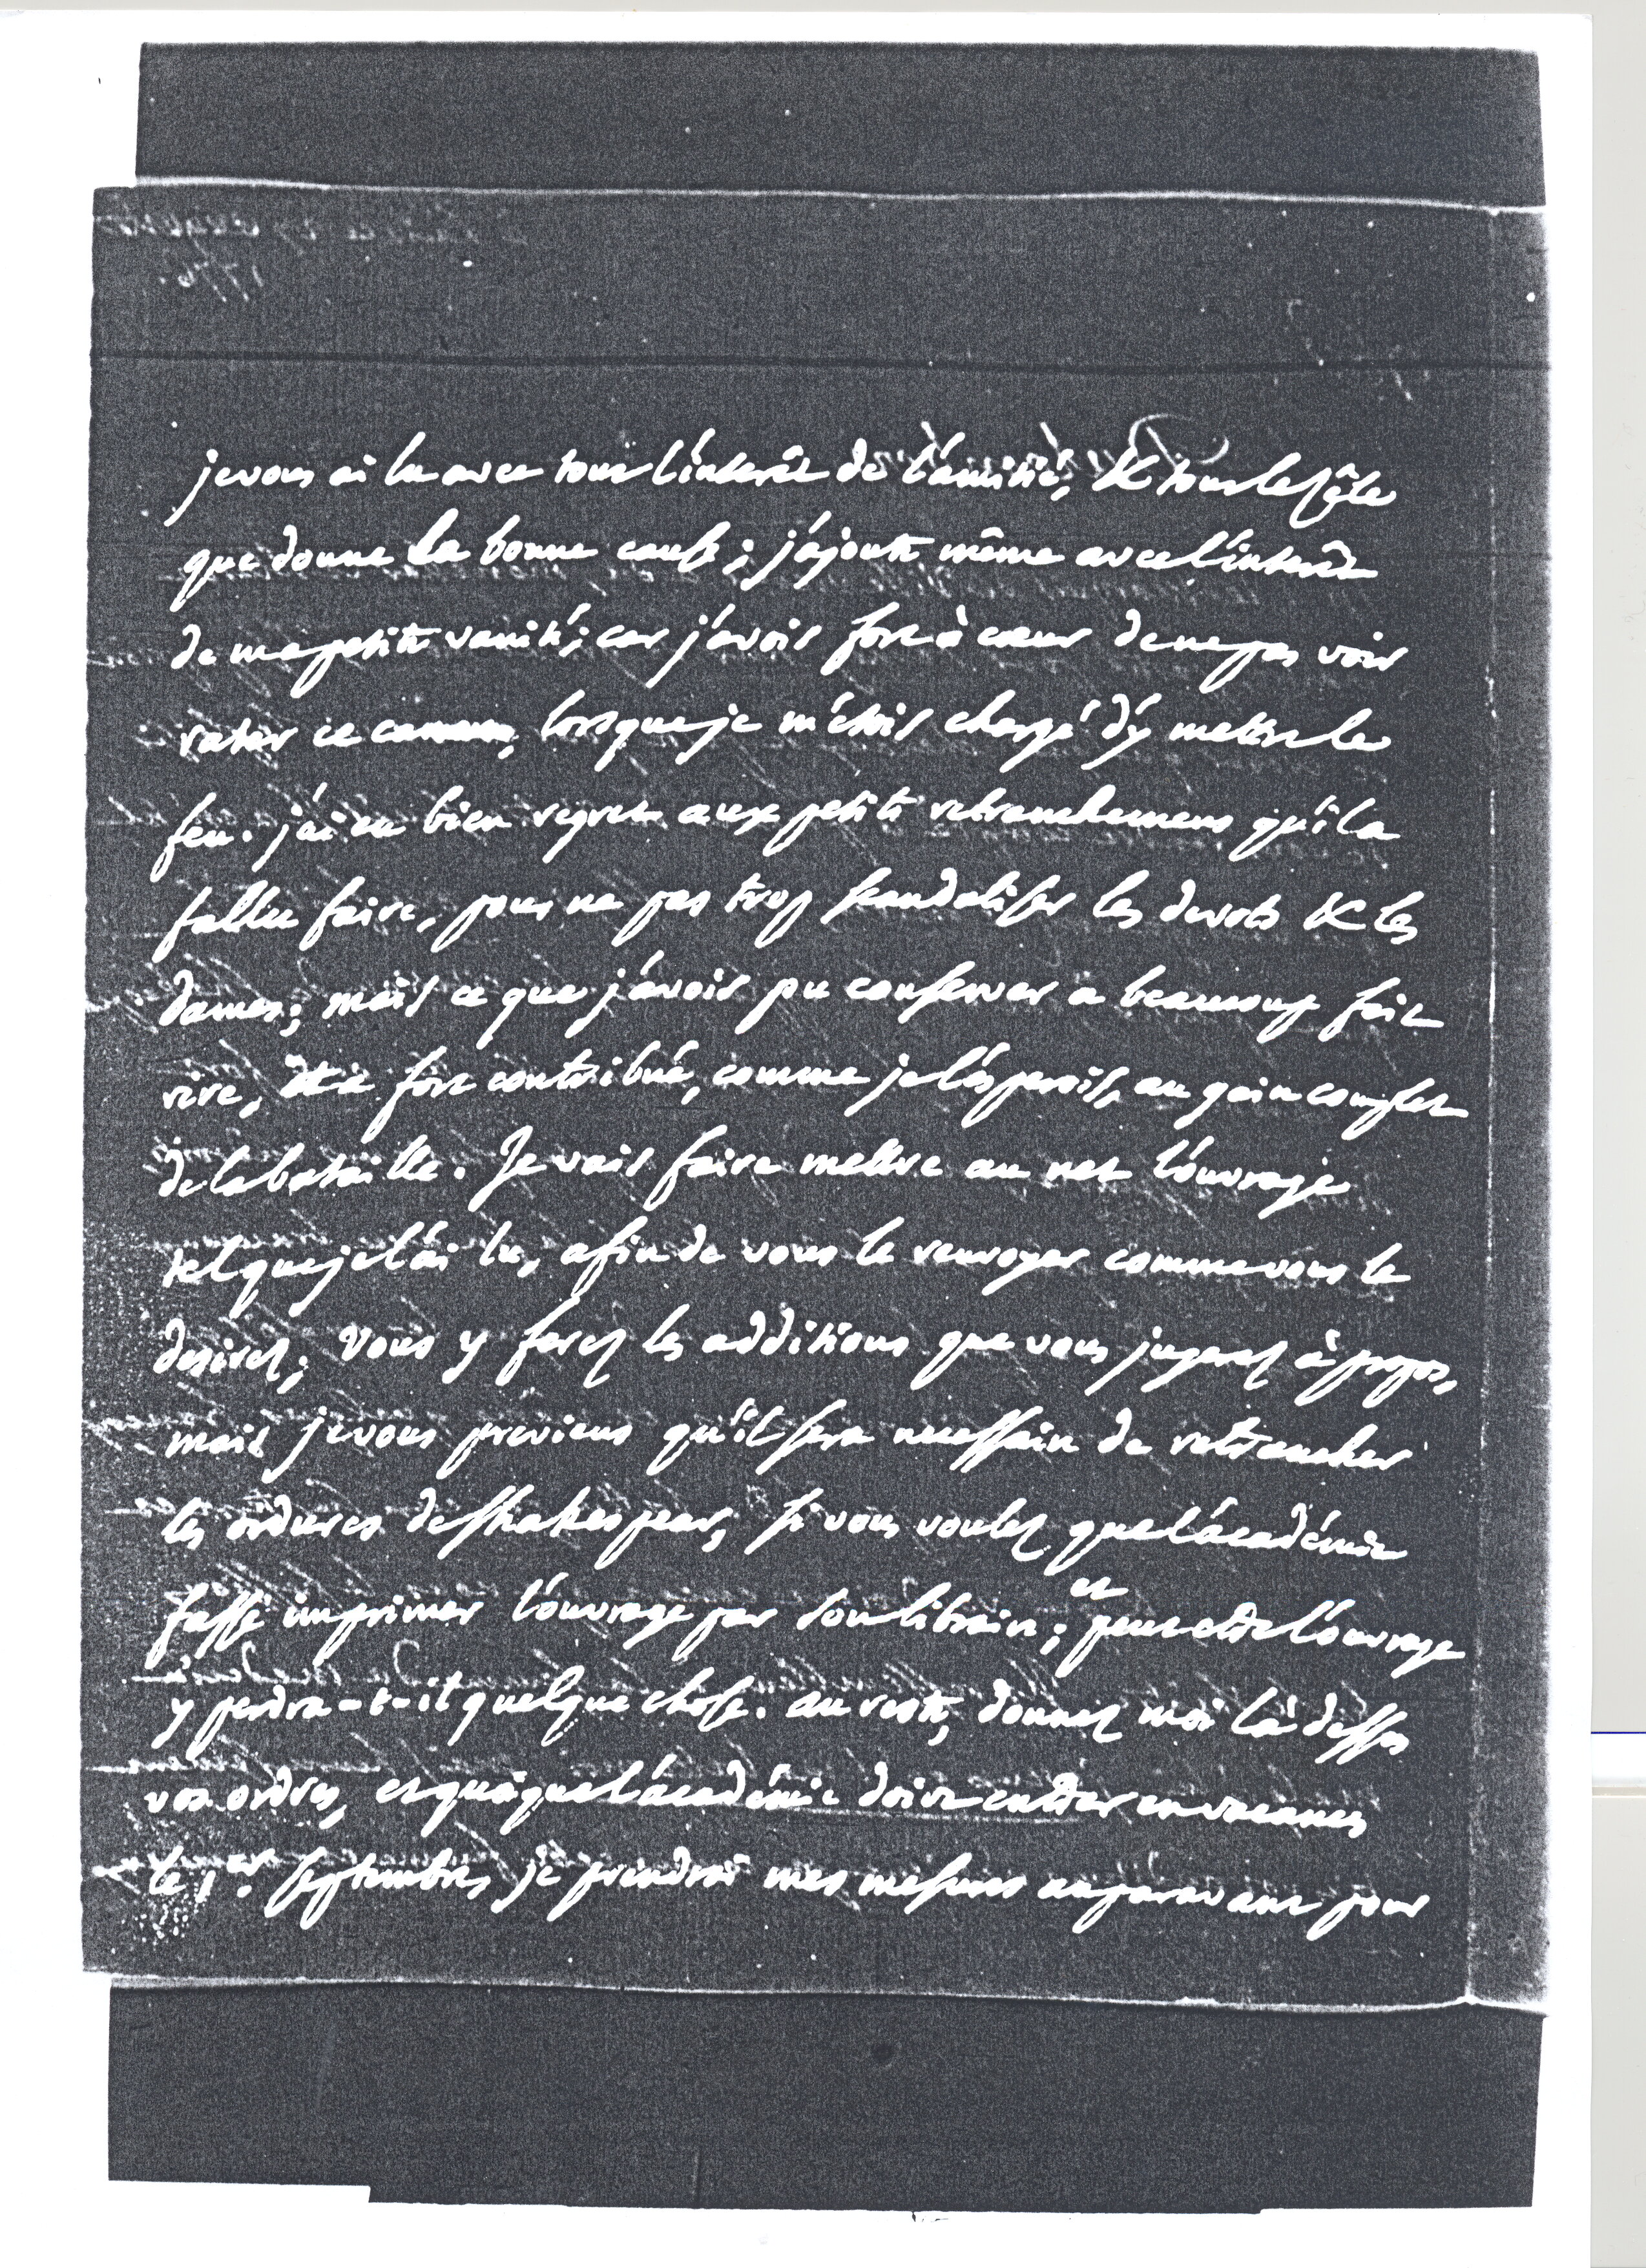 je vous ai lu avec tout l'intérêt de l'amitié, & tout le zêle
que donne la bonne cause; j'ajoute même avec l'intérêt
de ma petite vanité; car j'avois fort à cœur de ne pas voir
rater ce canon, lorsque je m'étois chargé d'y mettre le
feu. j'ai eu bien regret aux petits retranchemens qu'il a
fallu faire, pour ne pas trop scandaliser les devots & les
dames; mais ce que j'avois pu conserver a beaucoup fait
rire, & a fort contribué, comme je l'esperois, au gain complet
de la bataille. Je vais faire mettre au net l'ouvrage
tel que je l'ai lu, afin de vous le renvoyer comme vous le
desirez; vous y ferez les additions que vous jugerez à propos,
mais je vous previens qu'il sera necessaire de retrancher
les ordures de Shakespear, si vous voulez que l'académie
fasse imprimer l'ouvrage par son libraire; et peut etre l'ouvrage
y perdra-t-il quelque chose. au reste, donnez moi là dessus
vos ordres, et quoique l'académie doive entrer en vacances
le 1er. Septembre, je prendrai mes mesures auparavant pour